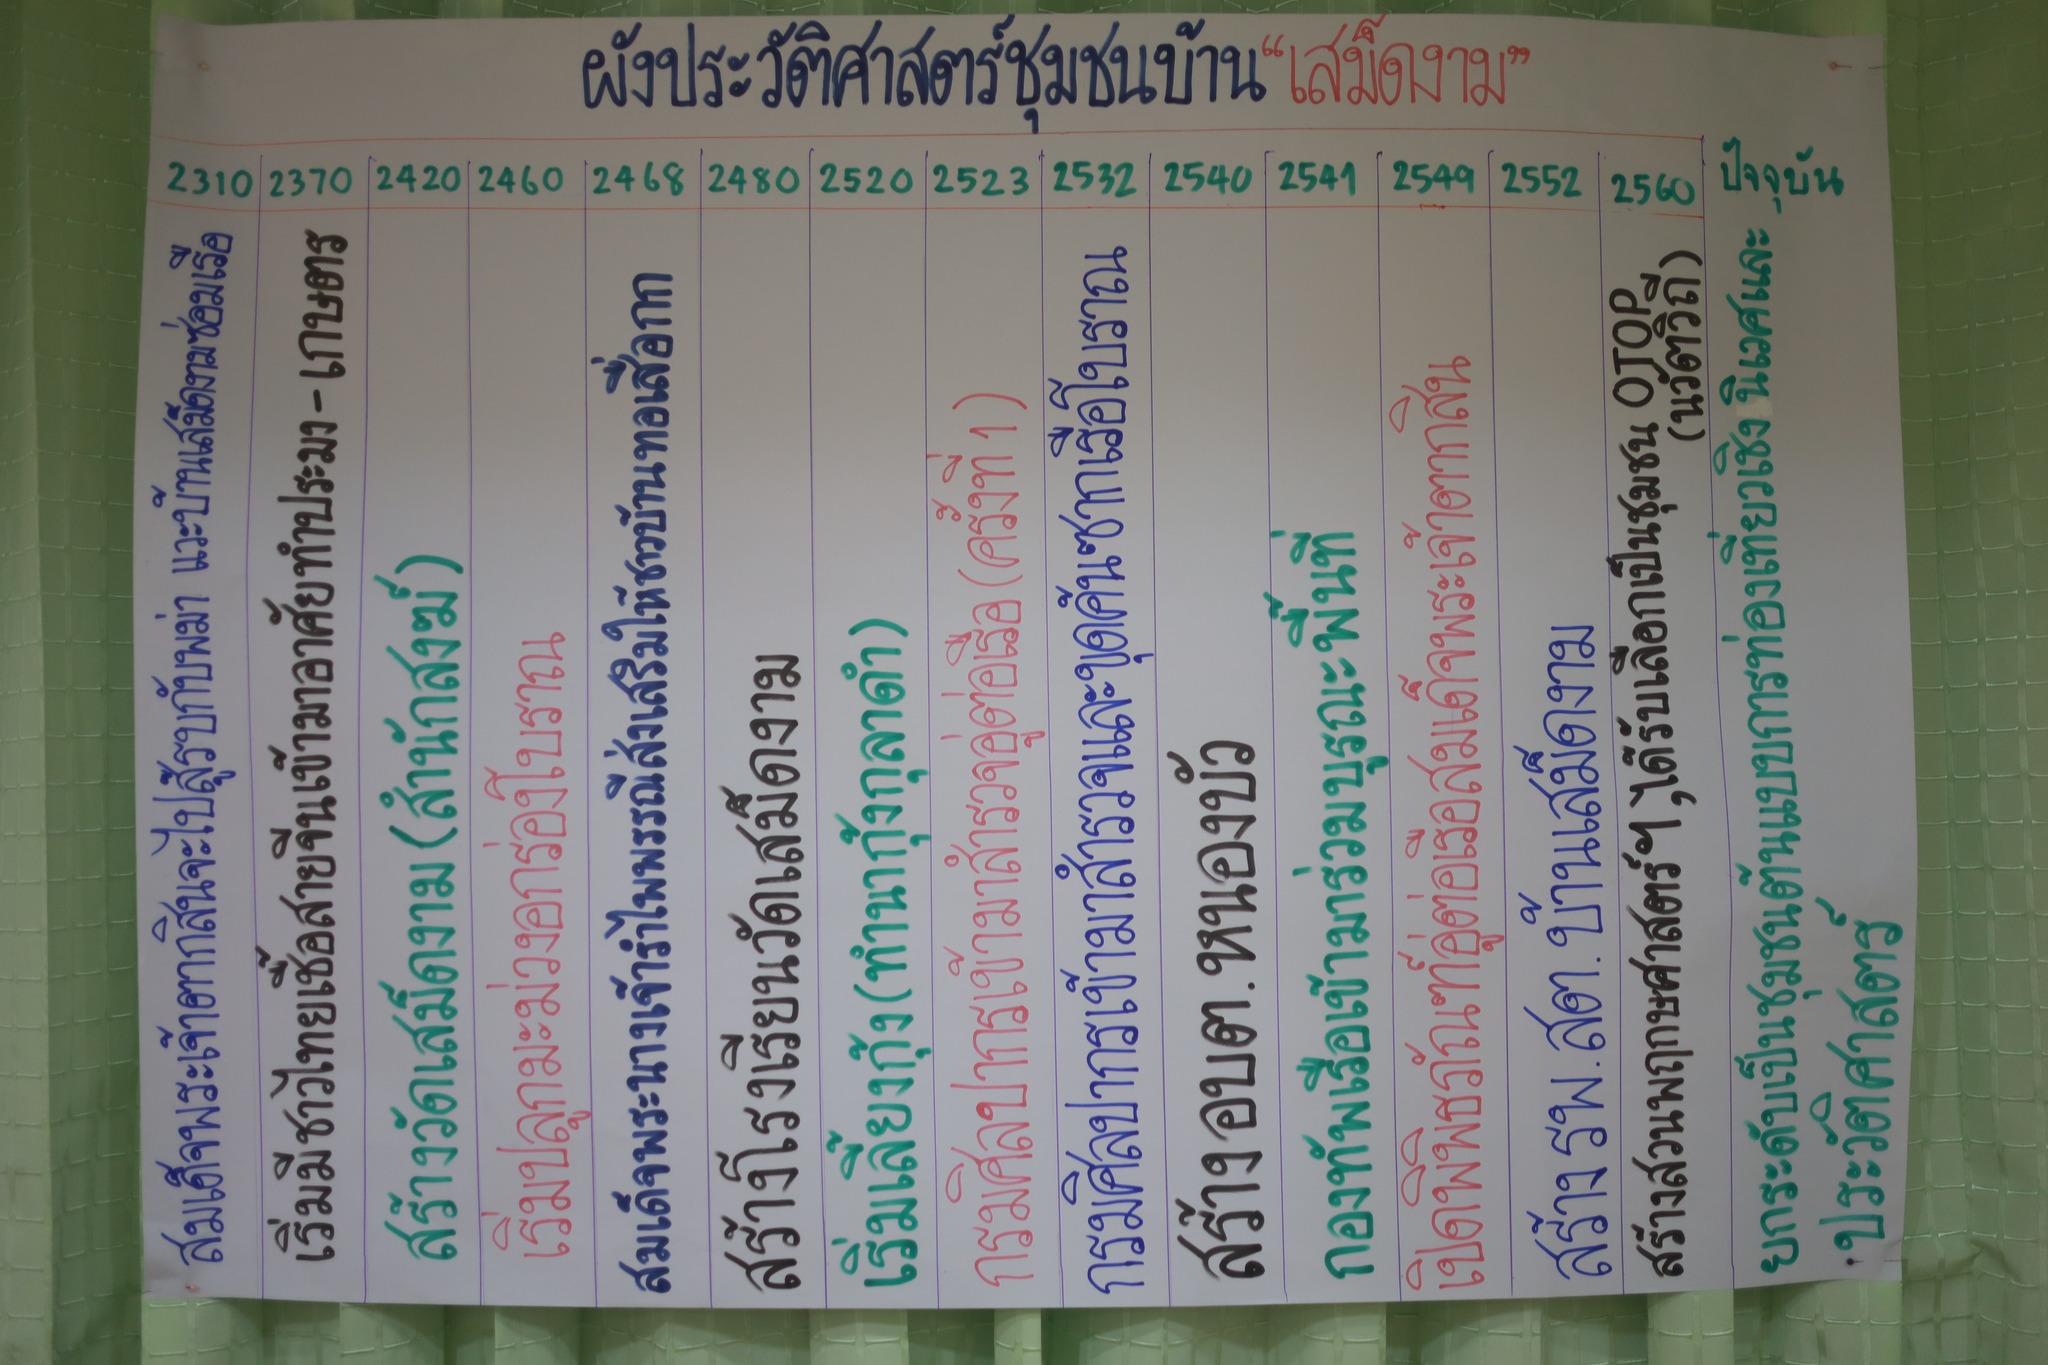 ผังประวัติศาสตร์ชุมชนบ้าน“เสม็ดงาม”
2310 2370 2420 2460 2468 2480 2520 2523 2532 2540 2541 2549 2552 2560 ปัจจุบัน
สมเด็จพระเจ้าตากสินจะไปสู้รบกับพม่า แวะบ้านเสม็ดงามซ่อมเรือ
เริ่มมีชาวไทยเชื้อสายจีนเข้ามาอาศัยทำประมง - เกษตร
สร้างวัดเสม็ดงาม (สำนักสงฆ์)
เริ่มปลูกมะม่วงอกร่องโบราณ
สมเด็จพระนางเจ้ารำไพพรรณีส่งเสริมให้ชาวบ้านทอเสื่อกก
สร้างโรงเรียนวัดเสม็ดงาม
เริ่มเลี้ยงกุ้ง (ทำนากุ้งกุลาดำ)
กรมศิลปากรเข้ามาสำรวจอู่ต่อเรือ (ครั้งที่ 1)
กรมศิลปากรเข้ามาสำรวจและขุดค้นซากเรือโบราณ
สร้าง อบต. หนองบัว
กองทัพเรือเข้ามาร่วมบูรณะพื้นที่
เปิดพิพิธภัณฑ์อู่ต่อเรือสมเด็จพระเจ้าตากสิน
สร้าง รพ.สต. บ้านเสม็ดงาม
สร้างสวนพฤกษศาสตร์ฯ, ได้รับเลือกเป็นชุมชน OTOP
(นวัตวิถี)
ยกระดับเป็นชุมชนต้นแบบการท่องเที่ยวเชิงนิเวศและ
ประวัติศาสตร์